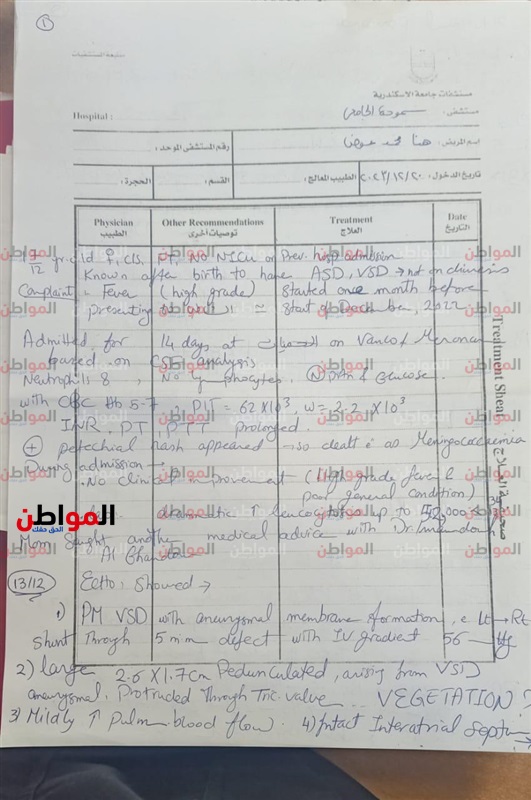 1
متابعة المستشفيات
مستشفيات جامعة الاسكندرية
Hospital :
مستشفى : سموحة الجامعي
اسم المريض : هنا محمد عوض
رقم المستشفى الموحد :
تاريخ الدخول : ٢٠٢٣/١٢/٢٠
الطبيب المعالج :
القسم :
الحجرة :
Physician الطبيب
Other Recommendations توصيات أخرى
Treatment العلاج
Date التاريخ
Treatment Sheet
صحيفة العلاج
7/12 yr old ♀, CS, FT, No NICU or Prev. hosp admission
Known after birth to have ASD, VSD → not on
Complaint - Fever (high grade) started one month before
presenting
start of 2022
Admitted for 14 days at on Vanco & Meronem
based on CSF analysis
Neutrophils 8, No lymphocytes, Glucose
with CBC Hb 5.7, PLT = 62 X10³, w = 2.2 X10³
INR, PT, PTT prolonged
+ petechial rash appeared → so dealt as Meningococcemia
During admission →
. No clinical improvement (high grade fever &
poor general condition)
dramatic ↑ leucocytosis up to 52,000
Mom Sought another medical advice with Dr.
Al Ghandour
13/12
Echo: Showed →
1) PM VSD with aneurysmal membrane formation, Lt → Rt
shunt Through 5mm defect with IV gradient 56
2) large 2.6 X 1.7cm Pedunculated, arising from VSD
aneurysmal. Protruded Through Tric. valve .. VEGETATION
3) Mildly ↑ pulm. blood flow. 4) Intact Interatrial Septum
المواطن
الحق حقك